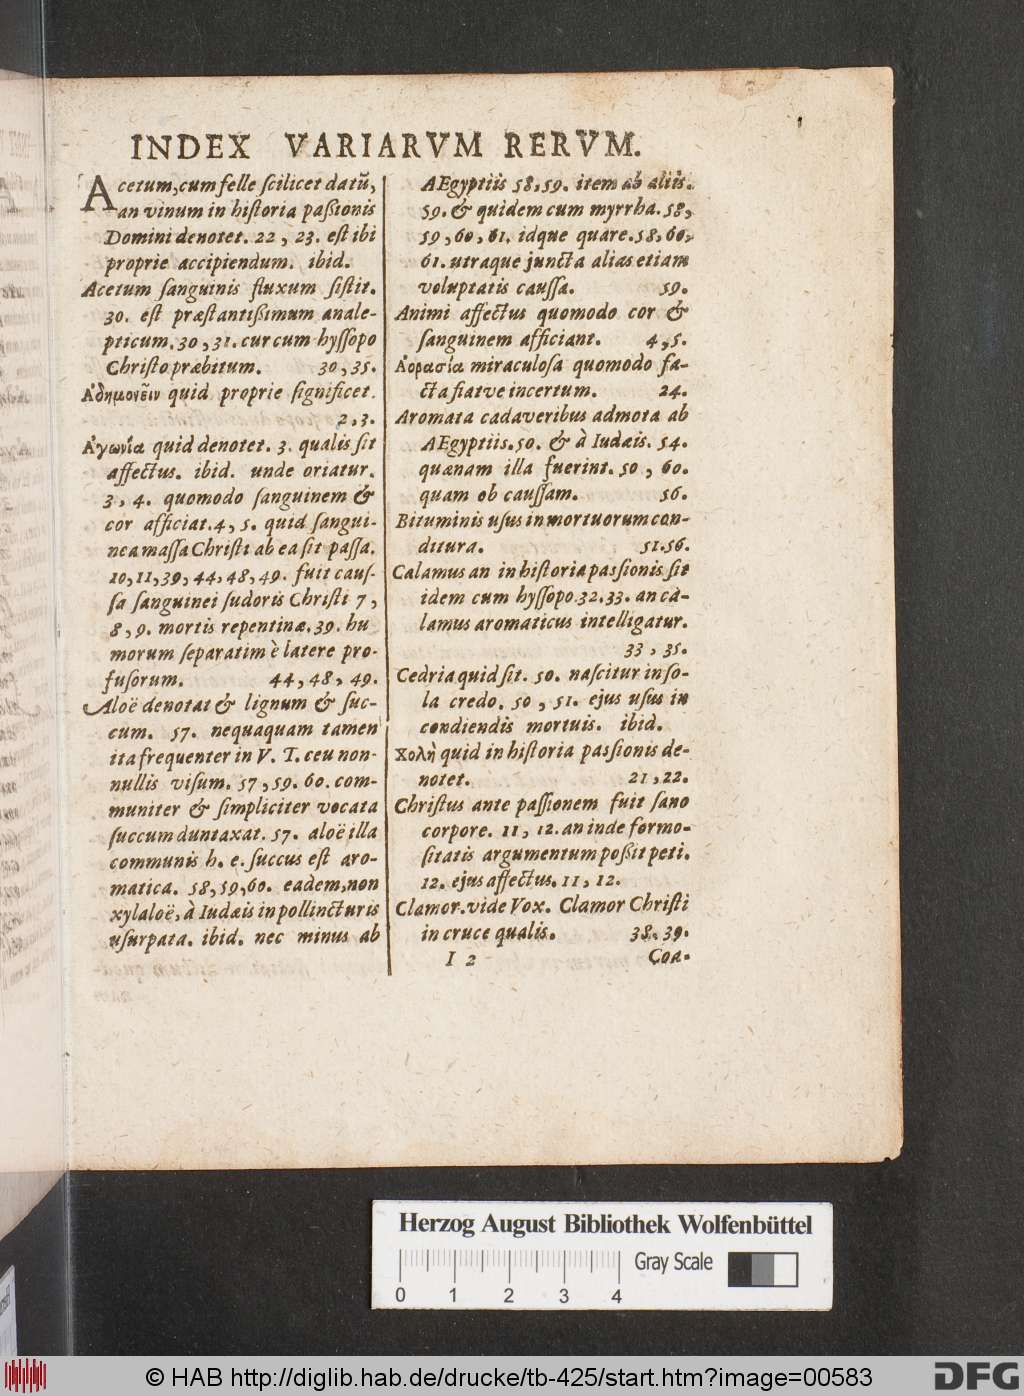 INDEX VARIARVM RERVM.
Acetum, cum felle scilicet datũ,
an vinum in historia passionis
Domini denotet. 22, 23. est ibi
proprie accipiendum. ibid.
Acetum sanguinis fluxum sistit.
30. est præstantissimum anale-
pticum. 30, 31. cur cum hyssopo
Christo præbitum. 30, 35.
Ἀδημονεῖν quid proprie significet.
2, 3.
Ἀγωνία quid denotet. 3. qualis sit
affectus. ibid. unde oriatur.
3, 4. quomodo sanguinem &
cor afficiat. 4, 5. quid sangui-
nea massa Christi ab ea sit passa.
10, 11, 39, 44, 48, 49. fuit caus-
sa sanguinei sudoris Christi 7,
8, 9. mortis repentinæ. 39. hu
morum separatim è latere pro-
fusorum. 44, 48, 49.
Aloë denotat & lignum & suc-
cum. 57. nequaquam tamen
ita frequenter in V. T. ceu non-
nullis visum. 57, 59. 60. com-
muniter & simpliciter vocata
succum duntaxat. 57. aloë illa
communis h. e. succus est aro-
matica. 58, 59, 60. eadem, non
xylaloë, à Iudæis in pollincturis
usurpata. ibid. nec minus ab
AEgyptiis 58, 59. item ab aliis.
59. & quidem cum myrrha. 58,
59, 60, 61. idque quare. 58, 60,
61. utraque juncta alias etiam
voluptatis caussa. 59.
Animi affectus quomodo cor &
sanguinem afficiant. 4, 5.
Ἀορασία miraculosa quomodo fa-
cta fiatve incertum. 24.
Aromata cadaveribus admota ab
AEgyptiis. 50. & à Iudæis. 54.
quænam illa fuerint. 50, 60.
quam ob caussam. 56.
Bituminis usus in mortuorum con-
ditura. 51. 56.
Calamus an in historia passionis sit
idem cum hyssopo. 32. 33. an ca-
lamus aromaticus intelligatur.
33, 35.
Cedria quid sit. 50. nascitur in so-
la credo. 50, 51. ejus usus in
condiendis mortuis. ibid.
Χολὴ quid in historia passionis de-
notet. 21, 22.
Christus ante passionem fuit sano
corpore. 11, 12. an inde formo-
sitatis argumentum possit peti.
12. ejus affectus. 11, 12.
Clamor. vide Vox. Clamor Christi
in cruce qualis. 38. 39.
I 2 Coa-
Herzog August Bibliothek Wolfenbüttel
Gray Scale
0 1 2 3 4
© HAB http://diglib.hab.de/drucke/tb-425/start.htm?image=00583
DFG